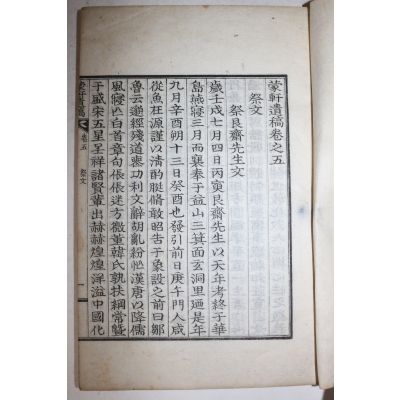 蒙軒遺稿卷之五
祭文
祭艮齋先生文
歲壬戌七月四日丙寅艮齋先生以天年考終于華
島燕寢三月而襄奉于益山三箕面玄洞里迺是年
九月辛酉朔十三日癸酉也發引前日庚午門人咸
從魚源謹以清酌脡脩敢昭告于象設之前曰鄒
魯云遞經殘道喪功利文辭胡亂紛漢唐以降儒
風寢白首章句倀倀迷方微董韓氏孰扶綱常曁
于盛宋五星呈祥諸賢輩出赫赫煌煌洋溢中國化
蒙軒遺稿 卷五 祭文 一